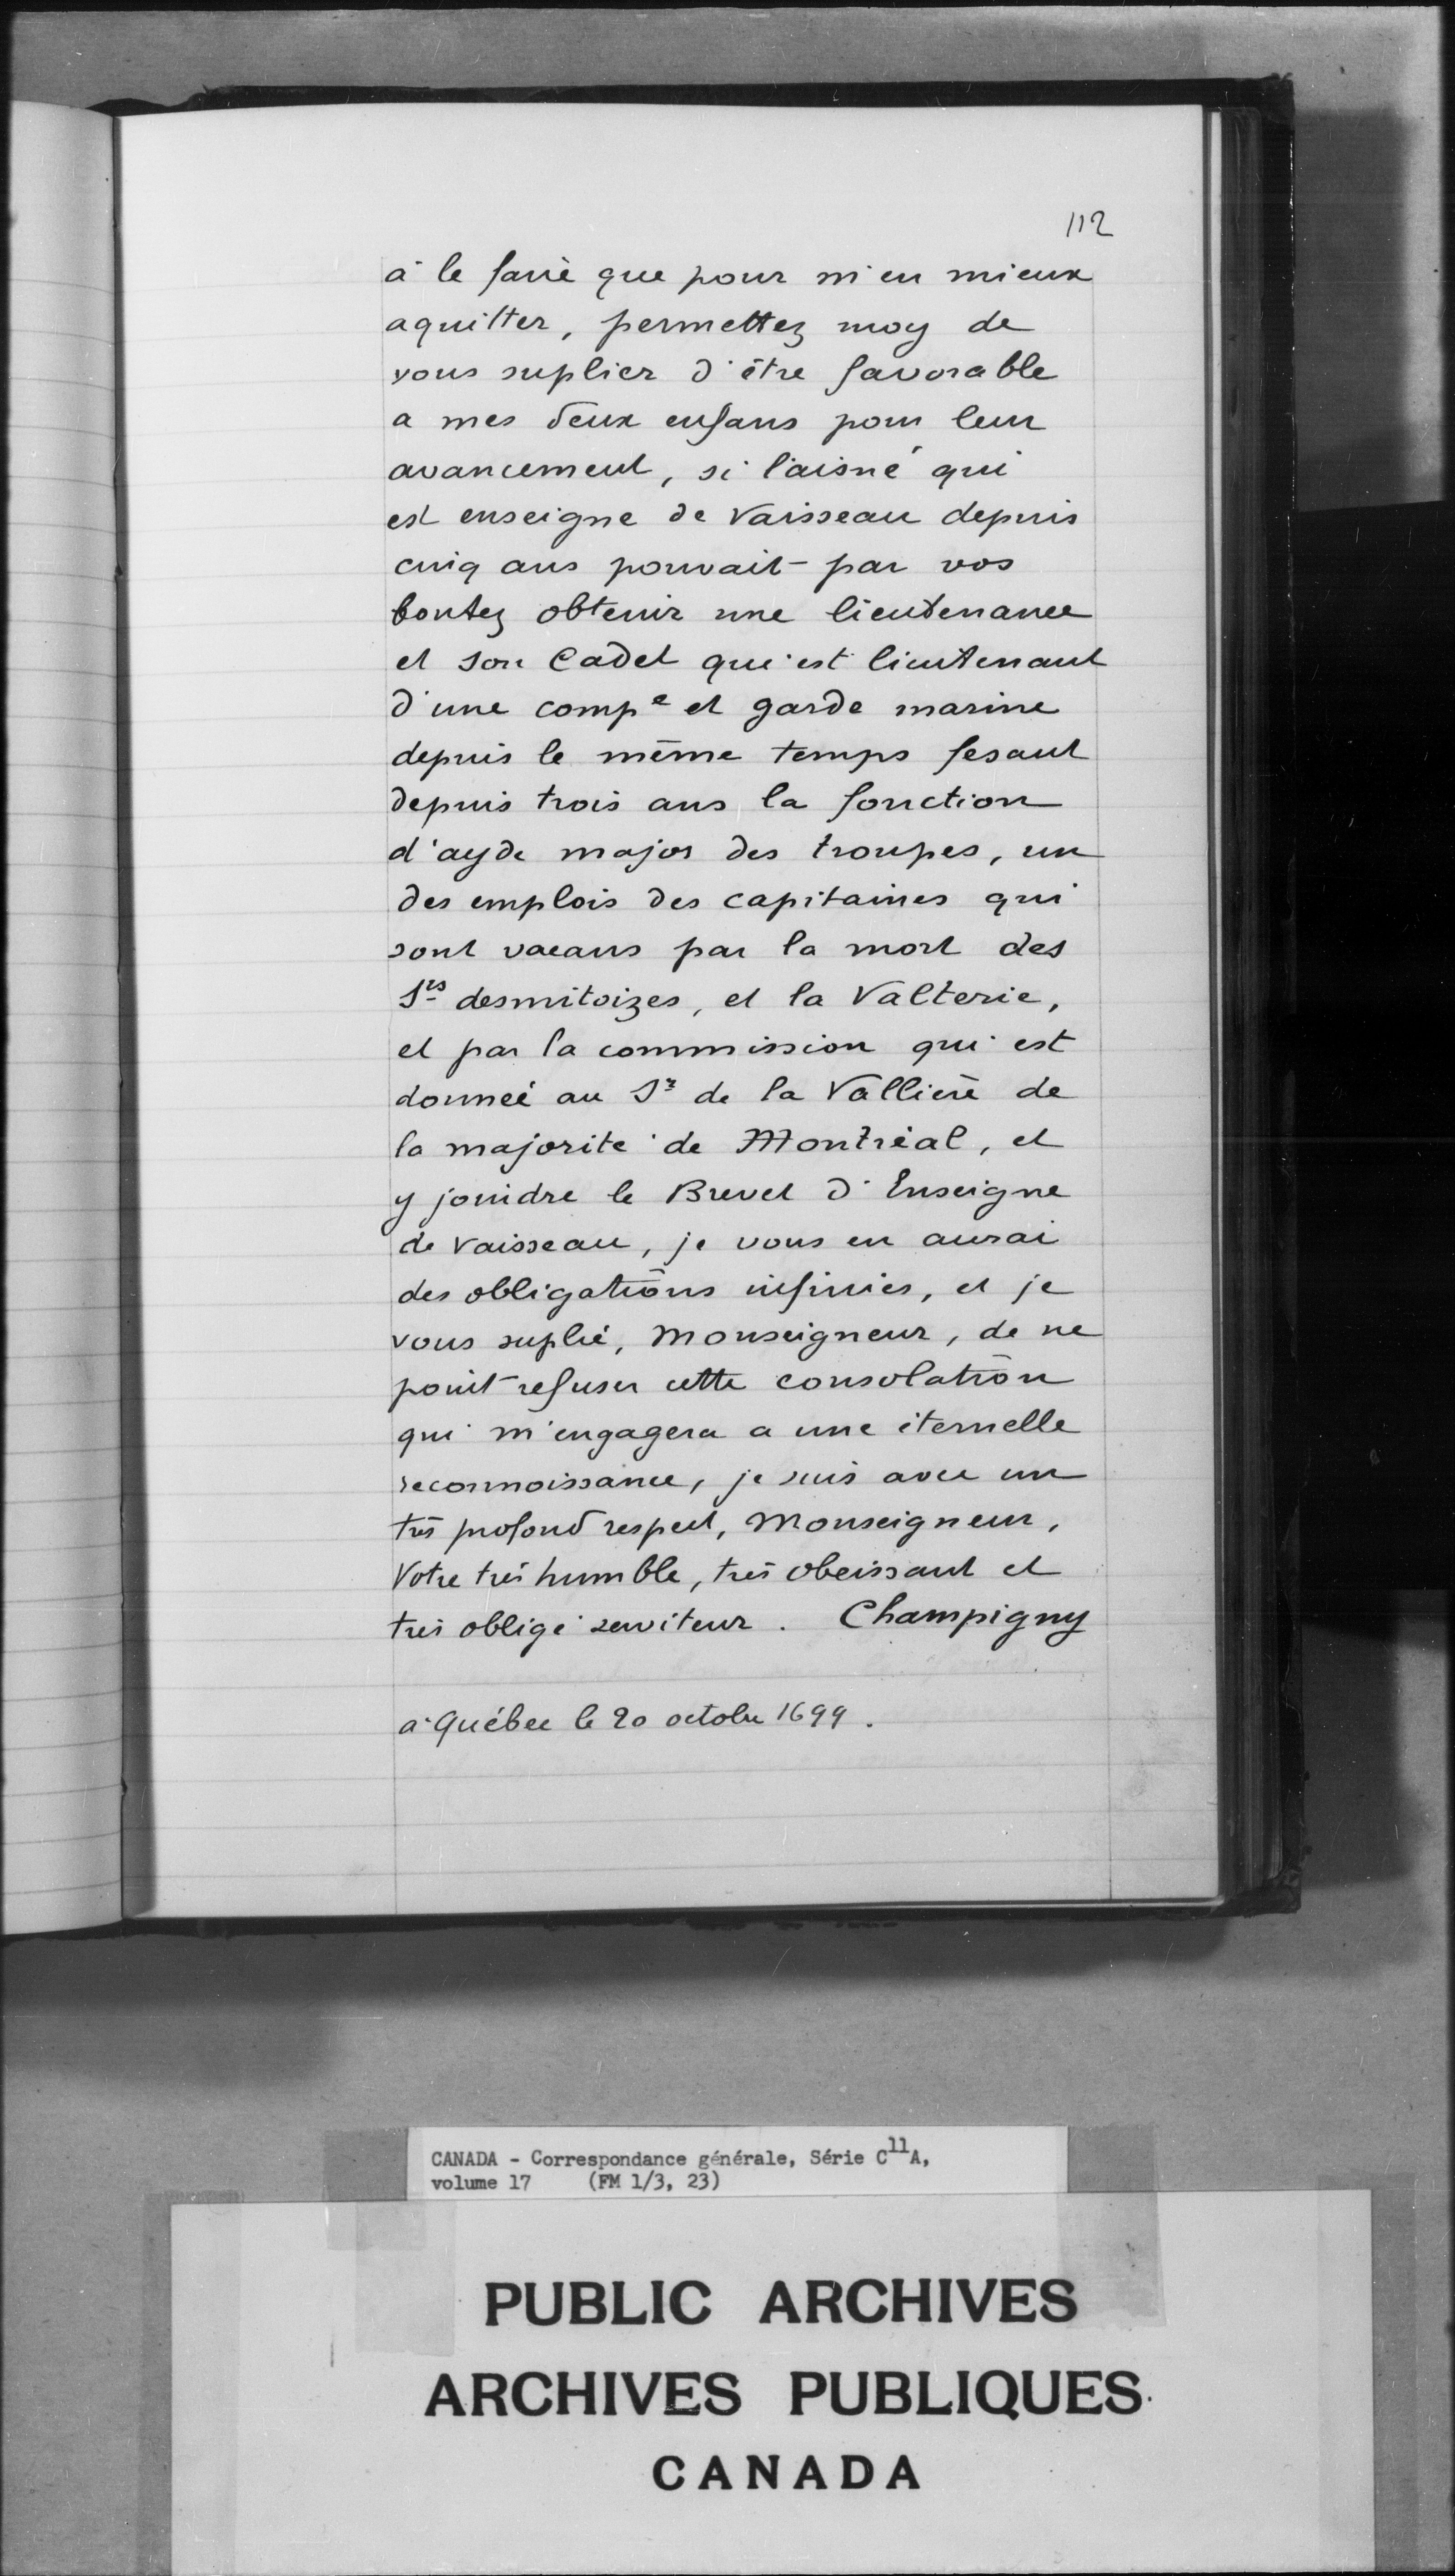 112
à le faire que pour m'en mieux
aquitter, permettez moy de
vous suplier d'être favorable
a mes deux enfans pour leur
avancement, si l'aisné qui
est enseigne de Vaisseau depuis
cinq ans pouvait par vos
bontez obtenir une lieutenance
et son Cadet qui est lieutenant
d'une compe et garde marine
depuis le même temps fesant
depuis trois ans la fonction
d'ayde major des troupes, un
des emplois des capitaines qui
sont vacans par la mort des
Srs desmitoizes, et la Valterie,
et par la commission qui est
donnée au Sr de la Vallière de
la majorité de Montréal, et
y joindre le Brevet d'Enseigne
de Vaisseau, je vous en aurai
des obligations infinies, et je
vous suplié, Monseigneur, de ne
point refuser cette consolation
qui m'engagera a une éternelle
reconnoissance, je suis avec un
très profond respect, Monseigneur,
Votre très humble, très obeissant et
très obligé serviteur. Champigny
à Québec le 20 octobre 1699.
CANADA - Correspondance générale, Série C11A,
volume 17 (FM 1/3, 23)
PUBLIC ARCHIVES
ARCHIVES PUBLIQUES
CANADA